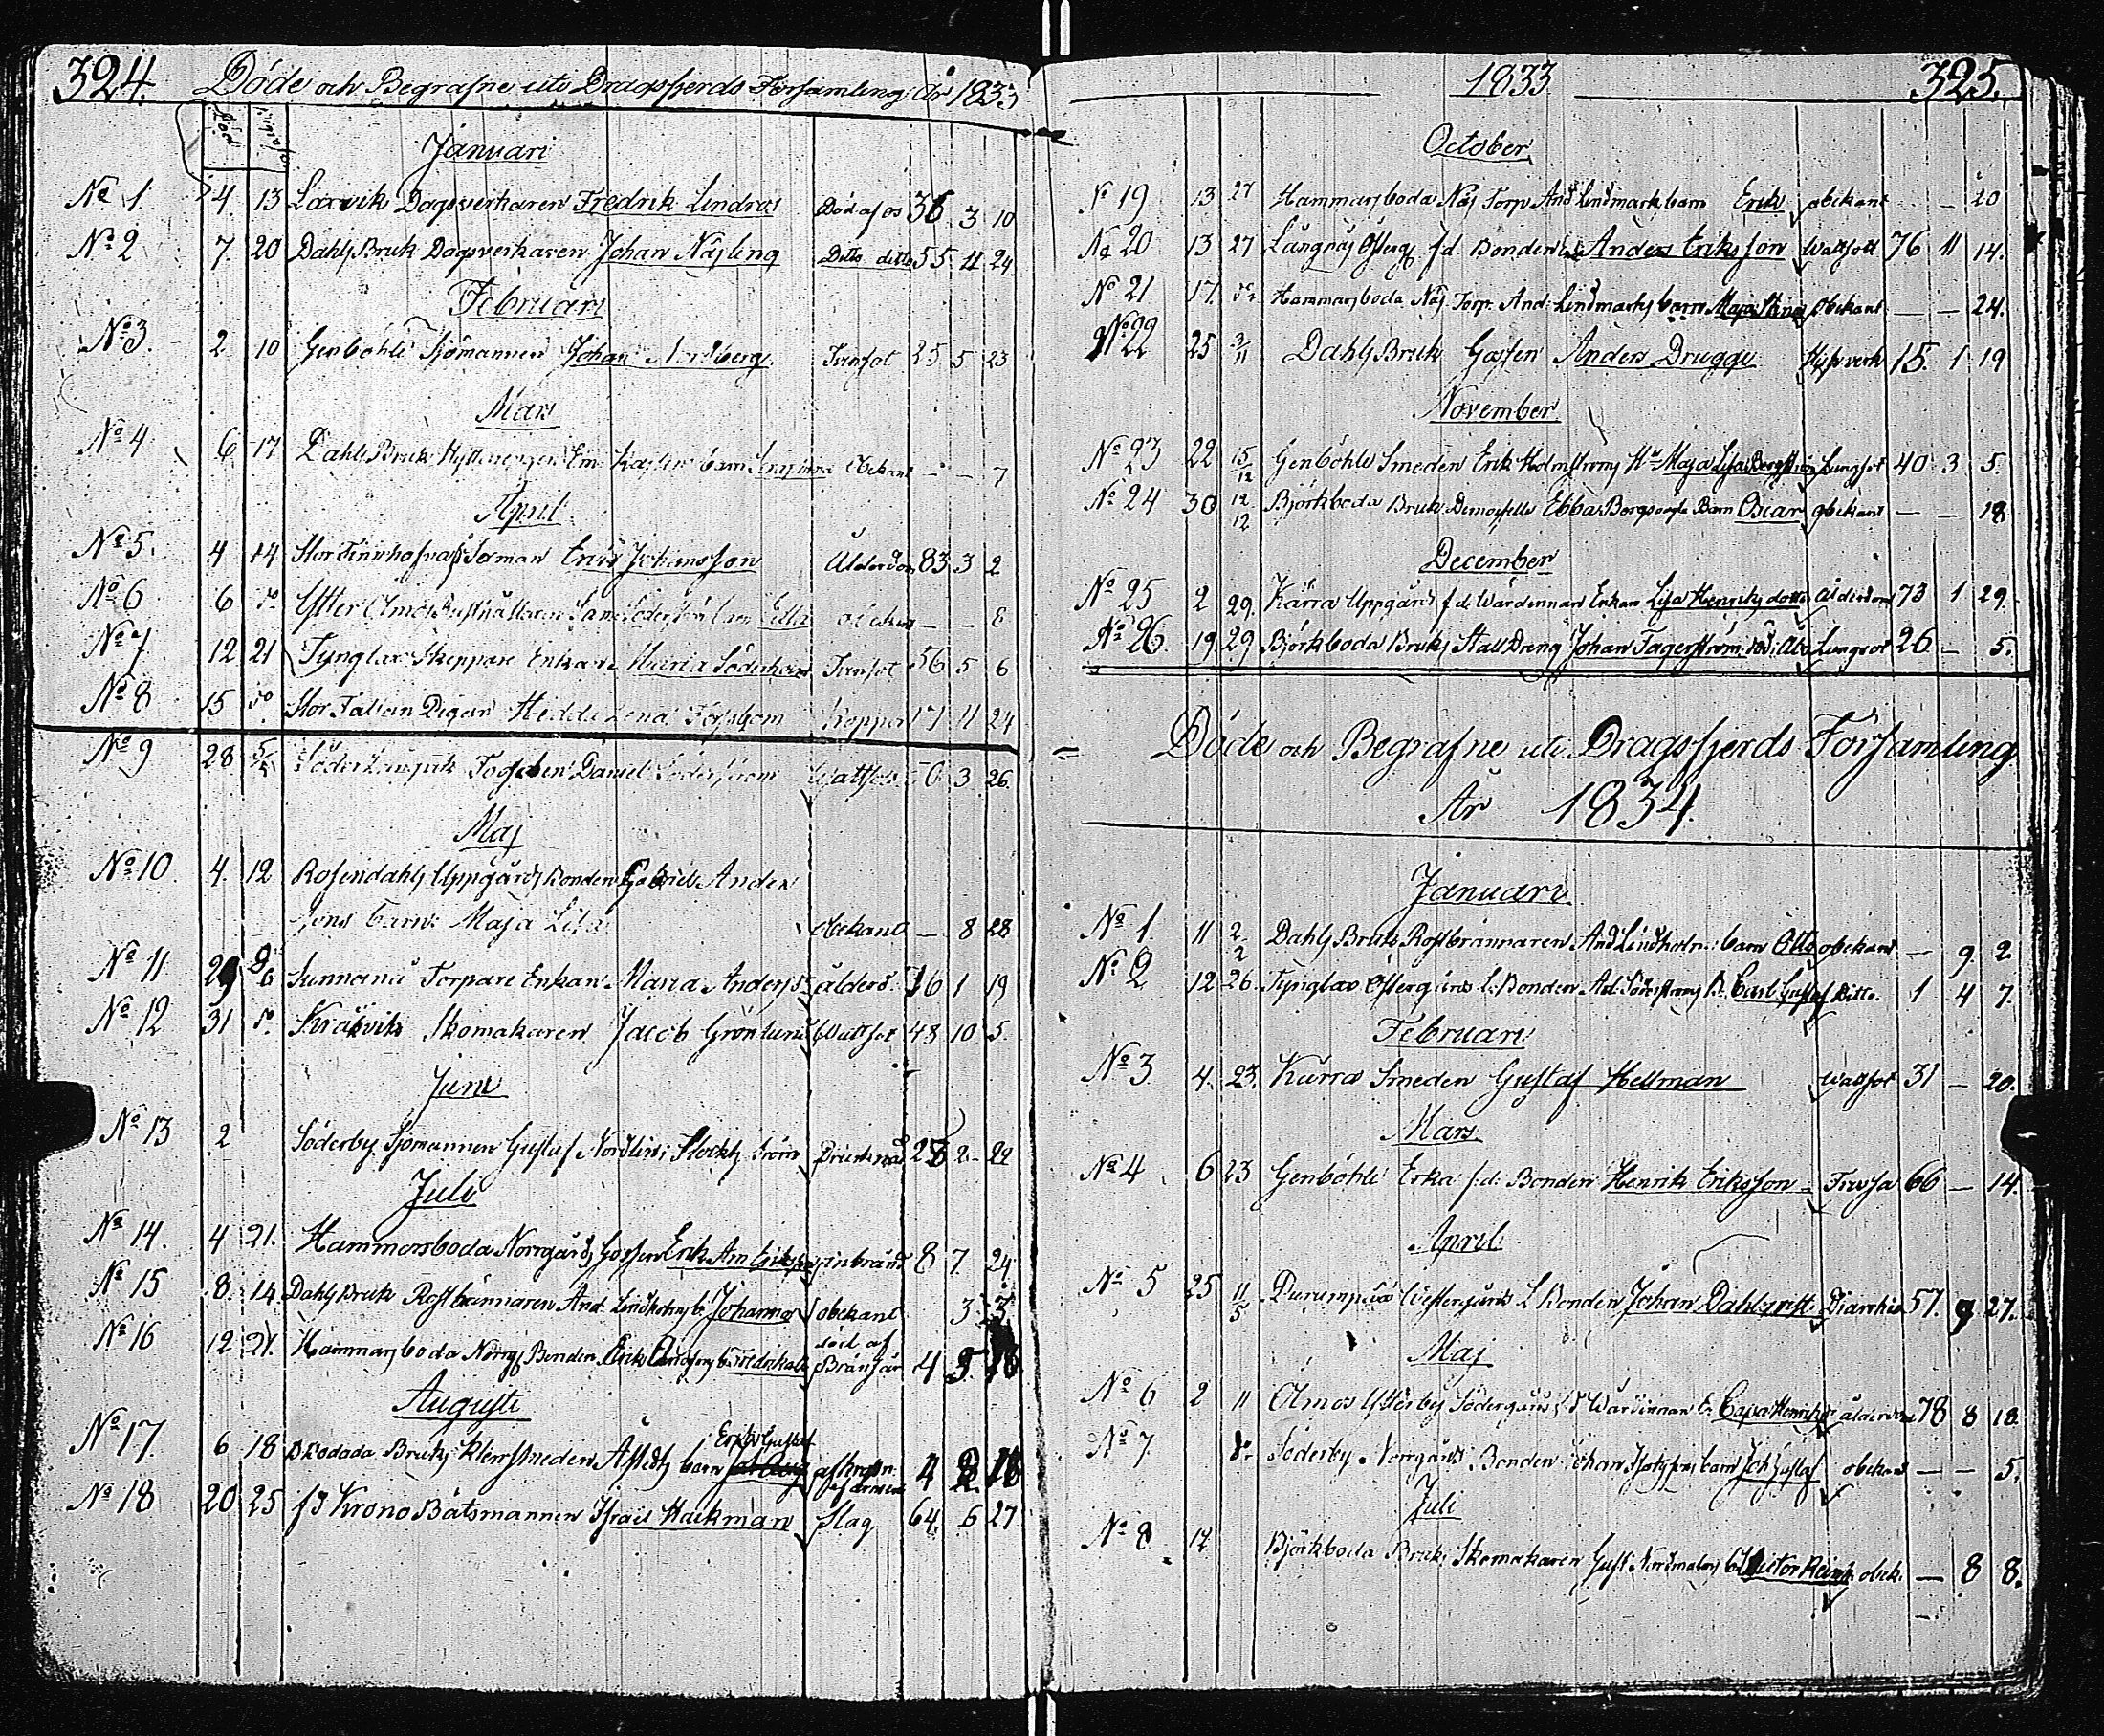 324. Döde och Begrafne uti Dragsfjerds Församling År 1833
Januari
No 1 4. 13 Laxvik Dagsverkaren Fredrik Lindros Död af os 36. 3 10
No 2 7. 20 Dahls Bruk Dagsverkaren Johan Näsling Ditto ditto 55 11 24.
Februari
No 3. 2 10 Genböhle Sjömannen Johan Nordberg Tvinsot 25 5 23
Mars
No 4 6 17 Dahls Bruk barn obekant - - 7
April
No 5. 4 14 Stor Finnhofva Torman Johansson Ålderdom 83 3 2
No 6 6 do Ytter Ölmos obekant - - 8
No 7 12 21 Tynglax Skeppare Enkan Maria Söderholm Tvinsot 56 5 6
No 8 15 do Hedda Lena Koppor 17 11 24
No 9 28 5/5 Daniel Söderström Wattsot 3 26.
Maj
No 10 4. 12 Rosendahls Uppgårds Bonden Gabriel Anders
sons barn Maja Lisa obekand - 8 28
No 11 29 9/6 Sunnanå Torpare Enkan Maria Andersdr ålderd. 76 1 19
No 12 31 do Skråvik Skomakaren Jacob Grönlund Wattsot 48 10 5.
Juni
No 13 2 Söderby Sjömannen Gustaf Nordlin i Stockh. ström Drunknad 28 2 22
Juli
No 14. 4 21. Hammarsboda Norrgårds Gossen Erik Am Eriksson inbränd 8 7. 24
No 15 8. 14 Dahls Bruk Rostbrännaren And. Lindholms b. Johannes obekant 3. 3
No 16 12 21. Hammarsboda Norrg. Bonden Erik b. Fredrika död af Bränsår 4 5.
Augusti
Erik Gustaf
No 17. 6 18 Bruks Klensmeden barn 4 2
No 18 20 25 fd Krono Båtsmannen Israel Hackman Slag 64. 6 27
1833 325.
October
No 19 13 27 Hammarsboda Näs Torp And Lindmarks barn Erik obekant - 20
No 20 13 27 Långnäs Österg. f.d. Bonden Anders Eriksson Wattsott 76 11 14.
No 21 17. do Hammarsboda Näs Torp. And: Lindmarks barn Maja Stina obekant - - 24.
No 22 25 3/11 Dahls Bruk Gossen Anders Drugge 15. 1 19
November
No 23 22 15/12 Genböhle Smeden Erik Holmströms Hu Maja Lisa Bergström Lungsot 40 3 5.
No 24 30 12/12 Björkboda Bruk Demoiselle Ebba Barn Oscar obekant - - 18
December
No 25 2 29. Kärra Uppgård f.d. Enkan Lisa Henriksdotter Ålderdom 73 1 29.
No 26. 19 29 Björkboda Bruks Stall Dreng Johan Fagerström död i Åbo Lungsot 26 - 5.
Döde och Begrafne uti Dragsfjerds Församling
År 1834.
Januari
No 1. 11 2/2 Dahls Bruk Rostbrännaren And Lindholm: barn Otto obekant - 9 2
No 2 12 26. Tynglax Östergårds l. Bonden Ad. Söderströms B. Carl Gustaf Ditto. 1 4 7.
Februari
No 3. 4. 23. Kärra Smeden Gustaf Hellman Wattsot 31 - 20.
Mars
No 4 6 23 Genböhle f.d. Bonden Henrik Eriksson Frossa 66 - 14.
April
No 5 25 11/5 Westergårds L Bonden Johan Dahlqvist Diarrhée 57. 9 27.
Maj
No 6 2 11 Ölmos Ytterby Södergårds E. Cajsa Henriksdr ålderdom 78 8 18
No 7. do Söderby Norrgårds Bonden Johan barn Joh Gustaf obekant - - 5.
Juli
No 8 12 Björkboda Bruks Skomakaren Gust. Nordmalms b. Victor obek. - 8 8.